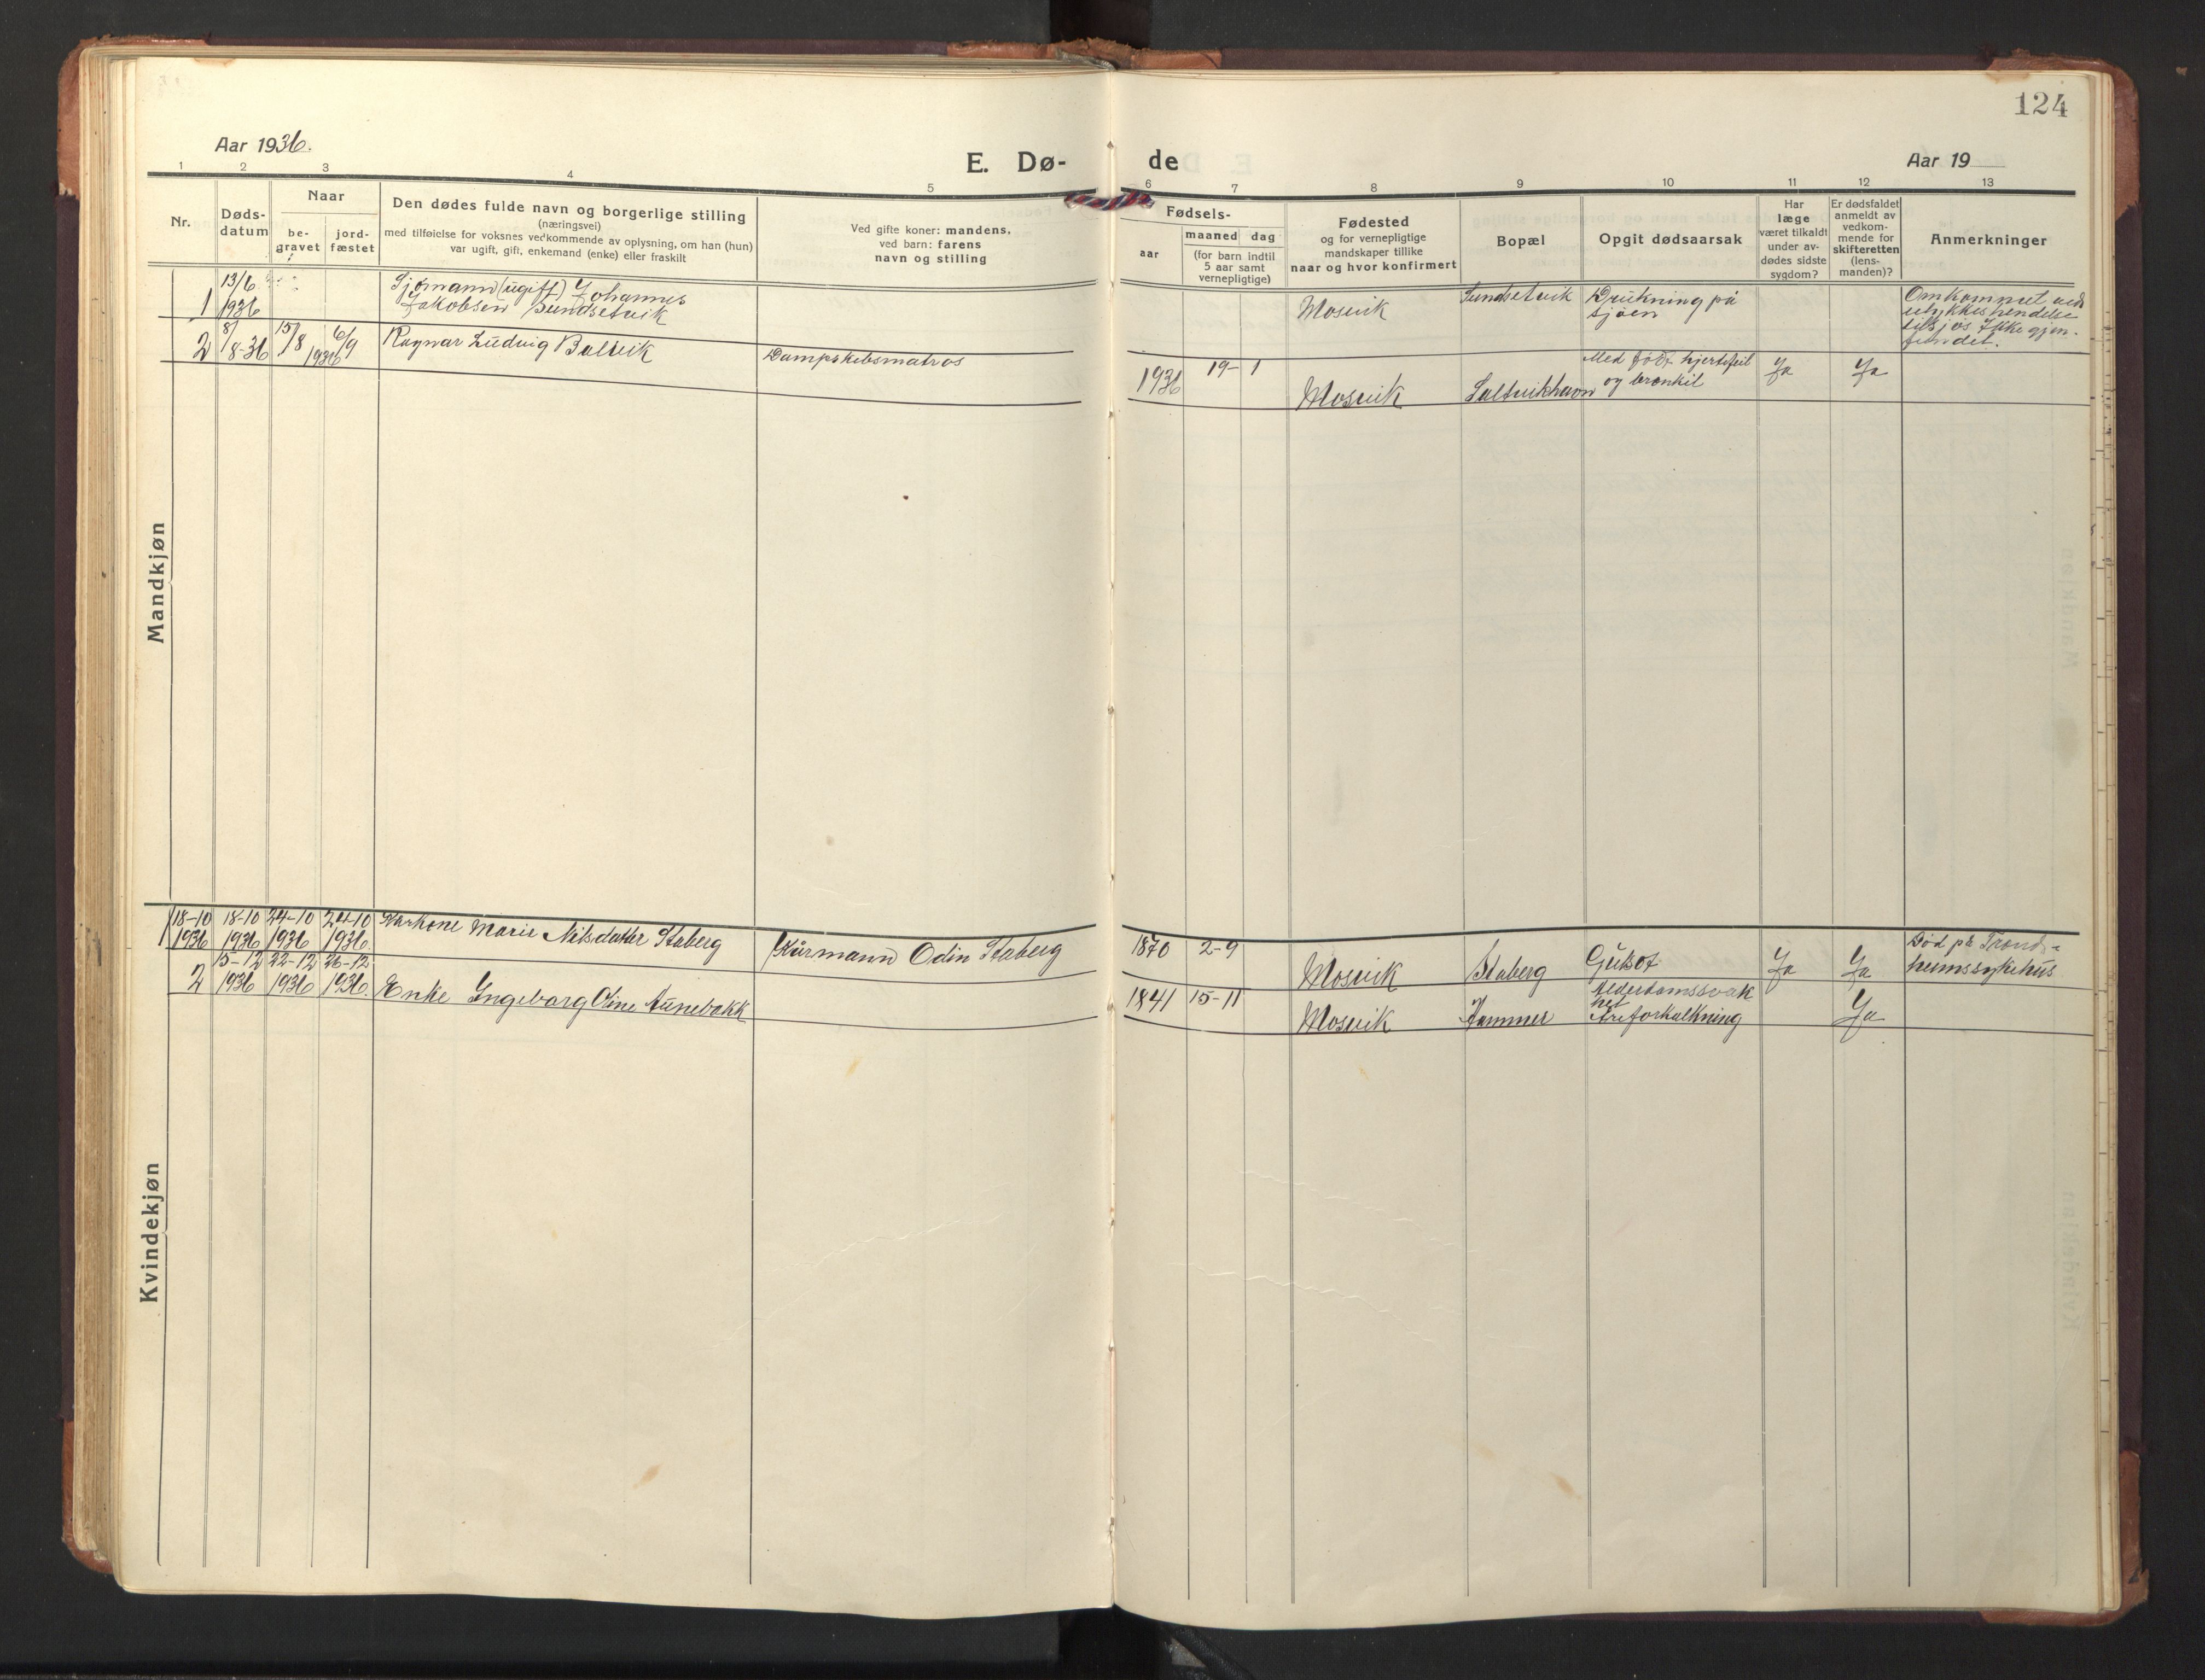 124
Aar 1936.
E. Dø-
de
Aar 19
1 2 3 4 5 6 7 8 9 10 11 12 13
Nr.
Døds-
datum
Naar
be-
gravet
jord-
fæstet
Den dødes fulde navn og borgerlige stilling
(næringsvei)
med tilføielse for voksnes vedkommende av oplysning, om han (hun)
var ugift, gift, enkemand (enke) eller fraskilt
Ved gifte koner: mandens,
ved barn: farens
navn og stilling
Fødsels-
aar
maaned dag
(for barn indtil
5 aar samt
vernepligtige)
Fødested
og for vernepligtige
mandskaper tillike
naar og hvor konfirmert
Bopæl
Opgit dødsaarsak
Har
læge
været tilkaldt
under av-
dødes sidste
sygdom?
Er dødsfaldet
anmeldt av
vedkom-
mende for
skifteretten
(lens-
manden)?
Anmerkninger
Mandkjøn
1
13/6
1936
Sjømann (ugift) Johannes
Jakobsen Sundsetvik
Mosvik
Sundsetvik
Drukning på
sjøen
Omkommet ved
ulykkeshendelse
tilsjøs Ikke gjen-
fundet.
2
8/
8-36
15/8
1936
6/9
Ragnar Ludvig
Dampskibsmatros
1936
19- 1
Mosvik
Saltvikhavn
Med født hjertefeil
og bronkit
Ja
Ja
Kvindekjøn
1
18-10
1936
18-10
1936
24-10
1936
24-10
1936
Karkone Marie Nilsdatter Staberg
Kårmann Odin Staberg
1870
2-9
Mosvik
Staberg
Ja
Ja
Død på Trond-
heimssykehus
2
15-12
1936
22-12
1936
26-12
1936
Enke Ingeborg Oline Aunebakk
1841
15-11
Mosvik
Hammer
Alderdomssvak
het
Åreforkalkning
Ja